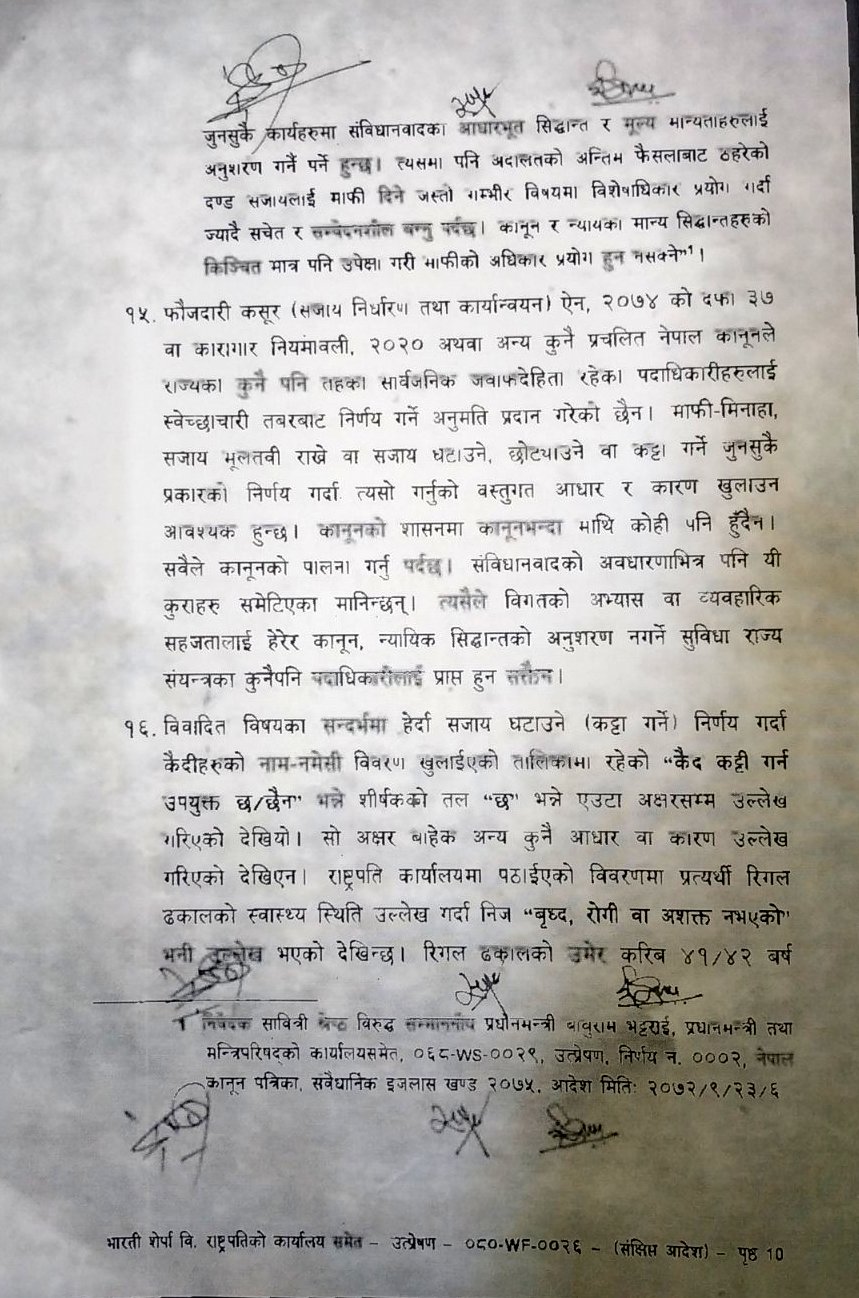 जुनसुकै कार्यहरुमा संविधानवादका आधारभूत सिद्धान्त र मूल्य मान्यताहरुलाई
अनुशरण गर्नै पर्ने हुन्छ। त्यसमा पनि अदालतको अन्तिम फैसलाबाट ठहरेको
दण्ड सजायलाई माफी दिने जस्तो गम्भीर विषयमा विशेषाधिकार प्रयोग गर्दा
ज्यादै सचेत र सम्वेदनशील बन्नु पर्दछ। कानून र न्यायका मान्य सिद्धान्तहरुको
किञ्चित मात्र पनि उपेक्षा गरी माफीको अधिकार प्रयोग हुन नसक्ने”¹।
१५. फौजदारी कसूर (सजाय निर्धारण तथा कार्यान्वयन) ऐन, २०७४ को दफा ३७
वा कारागार नियमावली, २०२० अथवा अन्य कुनै प्रचलित नेपाल कानूनले
राज्यका कुनै पनि तहका सार्वजनिक जवाफदेहिता रहेका पदाधिकारीहरुलाई
स्वेच्छाचारी तबरबाट निर्णय गर्ने अनुमति प्रदान गरेको छैन। माफी-मिनाहा,
सजाय मूलतवी राख्ने वा सजाय घटाउने, छोट्याउने वा कट्टा गर्ने जुनसुकै
प्रकारको निर्णय गर्दा त्यसो गर्नुको वस्तुगत आधार र कारण खुलाउन
आवश्यक हुन्छ। कानूनको शासनमा कानूनभन्दा माथि कोही पनि हुँदैन।
सबैले कानूनको पालना गर्नु पर्दछ। संविधानवादको अवधारणाभित्र पनि यी
कुराहरु समेटिएका मानिन्छन्। त्यसैले विगतको अभ्यास वा व्यवहारिक
सहजतालाई हेरेर कानून, न्यायिक सिद्धान्तको अनुशरण नगर्ने सुविधा राज्य
संयन्त्रका कुनैपनि पदाधिकारीलाई प्राप्त हुन सक्तैन।
१६. विवादित विषयका सन्दर्भमा हेर्दा सजाय घटाउने (कट्टा गर्ने) निर्णय गर्दा
कैदीहरुको नाम-नमेसी विवरण खुलाईएको तालिकामा रहेको “कैद कट्टी गर्न
उपयुक्त छ/छैन” भन्ने शीर्षकको तल “छ” भन्ने एउटा अक्षरसम्म उल्लेख
गरिएको देखियो। सो अक्षर बाहेक अन्य कुनै आधार वा कारण उल्लेख
गरिएको देखिएन। राष्ट्रपति कार्यालयमा पठाईएको विवरणमा प्रत्यर्थी रिगल
ढकालको स्वास्थ्य स्थिति उल्लेख गर्दा निज “बृध्द, रोगी वा अशक्त नभएको”
भनी उल्लेख भएको देखिन्छ। रिगल ढकालको उमेर करिब ४१/४२ बर्ष
1 निवेदक सावित्री श्रेष्ठ विरुद्ध सम्माननीय प्रधानमन्त्री बाबुराम भट्टराई, प्रधानमन्त्री तथा
मन्त्रिपरिषद्को कार्यालयसमेत, ०६८-WS-००२९, उत्प्रेषण, निर्णय नं. ०००२, नेपाल
कानून पत्रिका, सवैधानिक इजलास खण्ड २०७५, आदेश मितिः २०७२/९/२३/६
भारती शेर्पा वि. राष्ट्रपतिको कार्यालय समेत – उत्प्रेषण – ०८०-WF-००२६ – (संक्षिप्त आदेश) – पृष्ठ 10